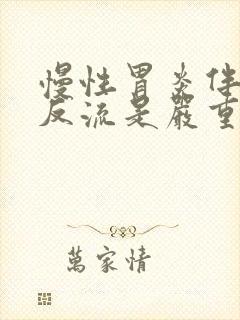 慢性胃炎伴
反流是嚴重
萬家情